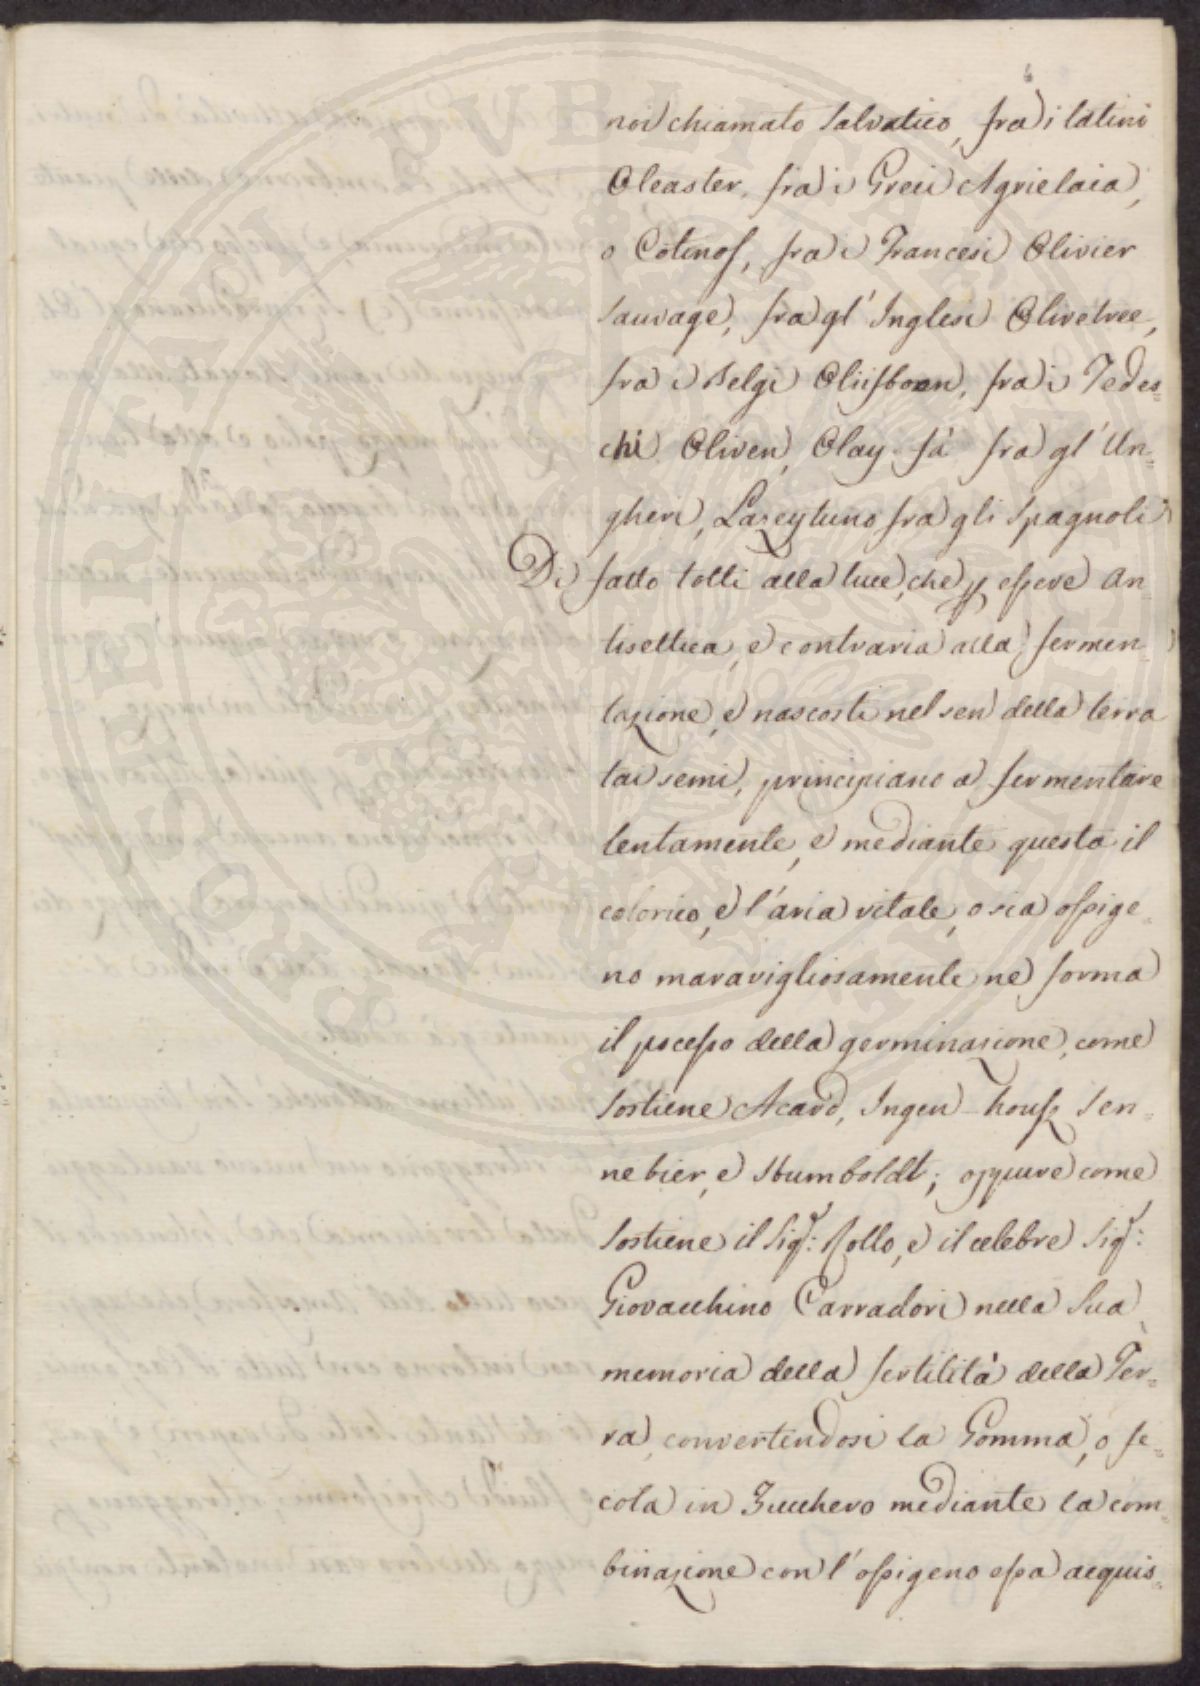 6
noi chiamato Salvatico, fra i latini
Oleaster, fra i Greci Agrielaia,
o Cotinos, fra i Francesi Olivier
Sauvage, fra gl' Inglesi Olivetree,
fra i Belgi Oliifboon, fra i Tedes=
chi Oliven, Olay fá fra gl' Un=
gheri, Lazeytuno fra gli Spagnoli
Di fatto tolti alla luce, che p essere an=
tisettica, e contraria alla fermen=
tazione, e nascosti nel sen della terra
tai semi, principiano a fermentare
lentamente, e mediante questa il
calorico, e l'aria vitale, o sia ossige=
no maravigliosamente ne forma
il pcesso della germinazione, come
sostiene Acard, Ingen-housz Sen=
nebier, e Humboldt; oppure come
sostiene il Sigr: Rollo, e il celebre Sigr:
Giovacchino Carradori nella Sua
memoria della fertilità della Ter=
ra, convertendosi la Gomma, o fe=
cola in Zucchero mediante la com=
binazione con l'ossigeno essa acquis=
PROSPERITATI PVBLICAE